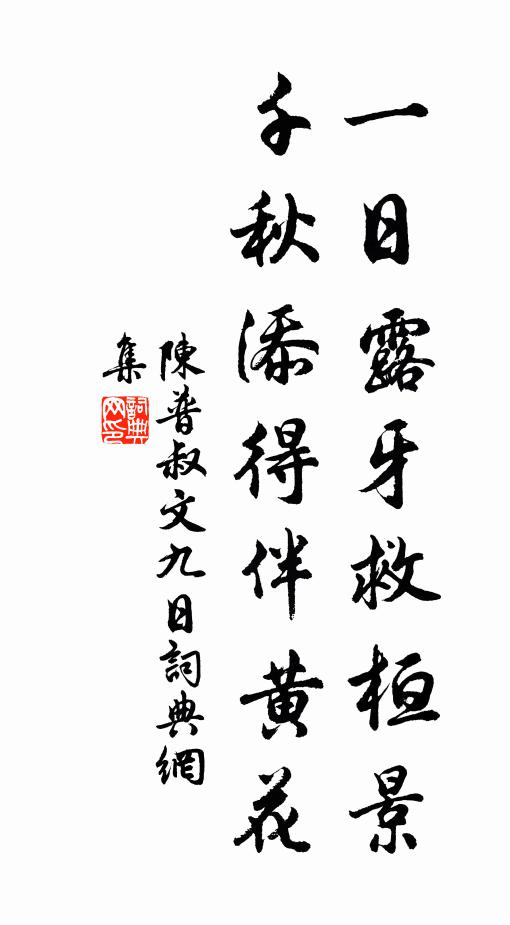 一日露牙救桓景
千秋添得伴黄花
陳普叔文九日詞典網
集
詞典網印